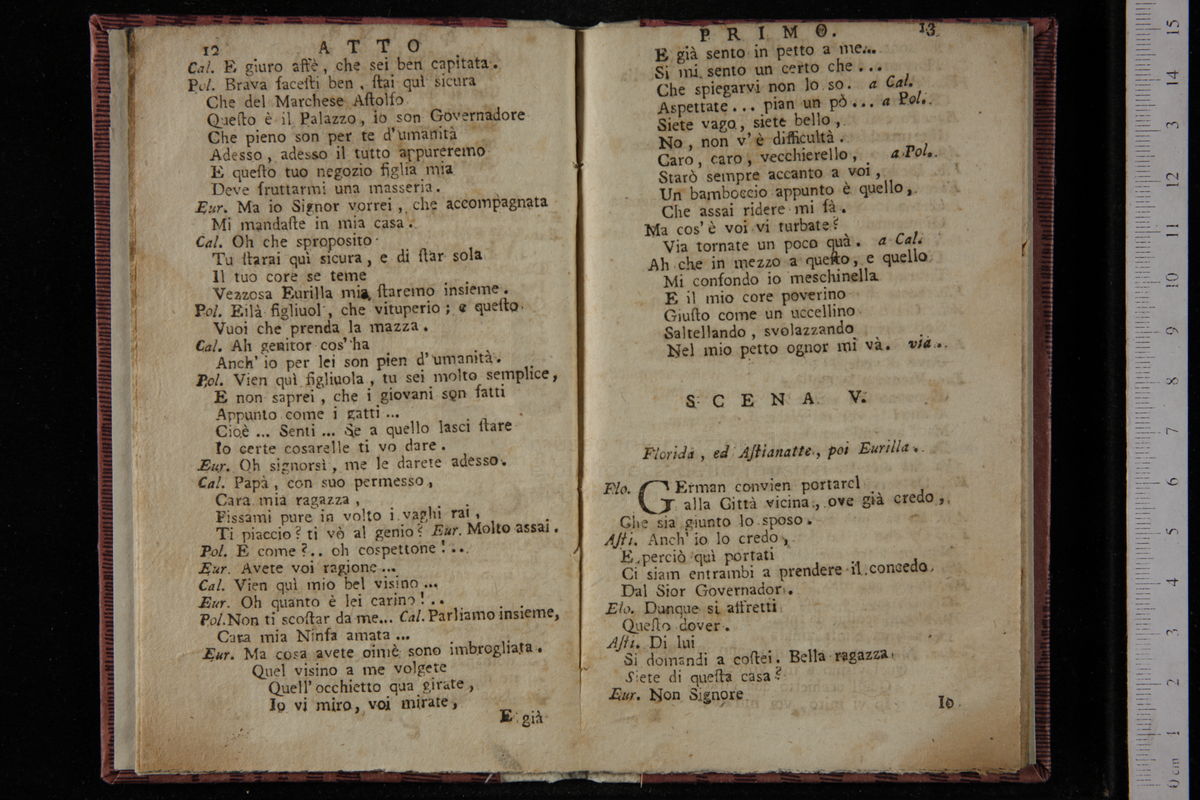 12 ATTO
Cal. E giuro affè, che sei ben capitata.
Pol. Brava facesti ben, stai quì sicura
Che del Marchese Astolfo
Questo è il Palazzo, io son Governadore
Che pieno son per te d'umanità
Adesso, adesso il tutto appureremo
E questo tuo negozio figlia mia
Deve fruttarmi una masseria.
Eur. Ma io Signor vorrei, che accompagnata
Mi mandaste in mia casa.
Cal. Oh che sproposito
Tu starai quì sicura, e di star sola
Il tuo core se teme
Vezzosa Eurilla mia staremo insieme.
Pol. Eilà figliuol', che vituperio; e questo
Vuoi che prenda la mazza.
Cal. Ah genitor cos' ha
Anch' io per lei son pien d'umanità.
Pol. Vien quì figliuola, tu sei molto semplice,
E non saprei, che i giovani son fatti
Appunto come i gatti ...
Cioè ... Senti ... Se a quello lasci stare
Io certe cosarelle ti vo dare.
Eur. Oh signorsì, me le darete adesso.
Cal. Papà, con suo permesso,
Cara mia ragazza,
Fissami pure in volto i vaghi rai,
Ti piaccio? ti vò al genio? Eur. Molto assai.
Pol. E come?.. oh cospettone!...
Eur. Avete voi ragione ...
Cal. Vien quì mio bel visino ...
Eur. Oh quanto è lei carino!..
Pol. Non ti scostar da me... Cal. Parliamo insieme,
Cara mia Ninfa amata ...
Eur. Ma cosa avete oimè sono imbrogliata.
Quel visino a me volgete
Quell' occhietto qua girate,
Io vi miro, voi mirate,
E già
PRIMO. 13
E già sento in petto a me...
Si mi sento un certo che ...
Che spiegarvi non lo so. a Cal.
Aspettate... pian un pò... a Pol.
Siete vago, siete bello,
No, non v'è difficultà.
Caro, caro, vecchierello, a Pol.
Starò sempre accanto a voi,
Un bamboccio appunto è quello,
Che assai ridere mi fà.
Ma cos' è voi vi turbate?
Via tornate un poco quà. a Cal.
Ah che in mezzo a questo, e quello
Mi confondo io meschinella
E il mio core poverino
Giusto come un uccellino
Saltellando, svolazzando
Nel mio petto ognor mi và. via.
SCENA V.
Florida, ed Astianatte, poi Eurilla.
Flo. GErman convien portarci
alla Città vicina, ove già credo,
Che sia giunto lo sposo.
Asti. Anch' io lo credo,
E perciò quì portati
Ci siam entrambi a prendere il concedo
Dal Sior Governador.
Flo. Dunque si affretti
Questo dover.
Asti. Di lui
Si domandi a costei. Bella ragazza
Siete di questa casa?
Eur. Non Signore
Io
15
14
3
12
11
10
9
8
7
6
5
4
3
2
1
0 cm